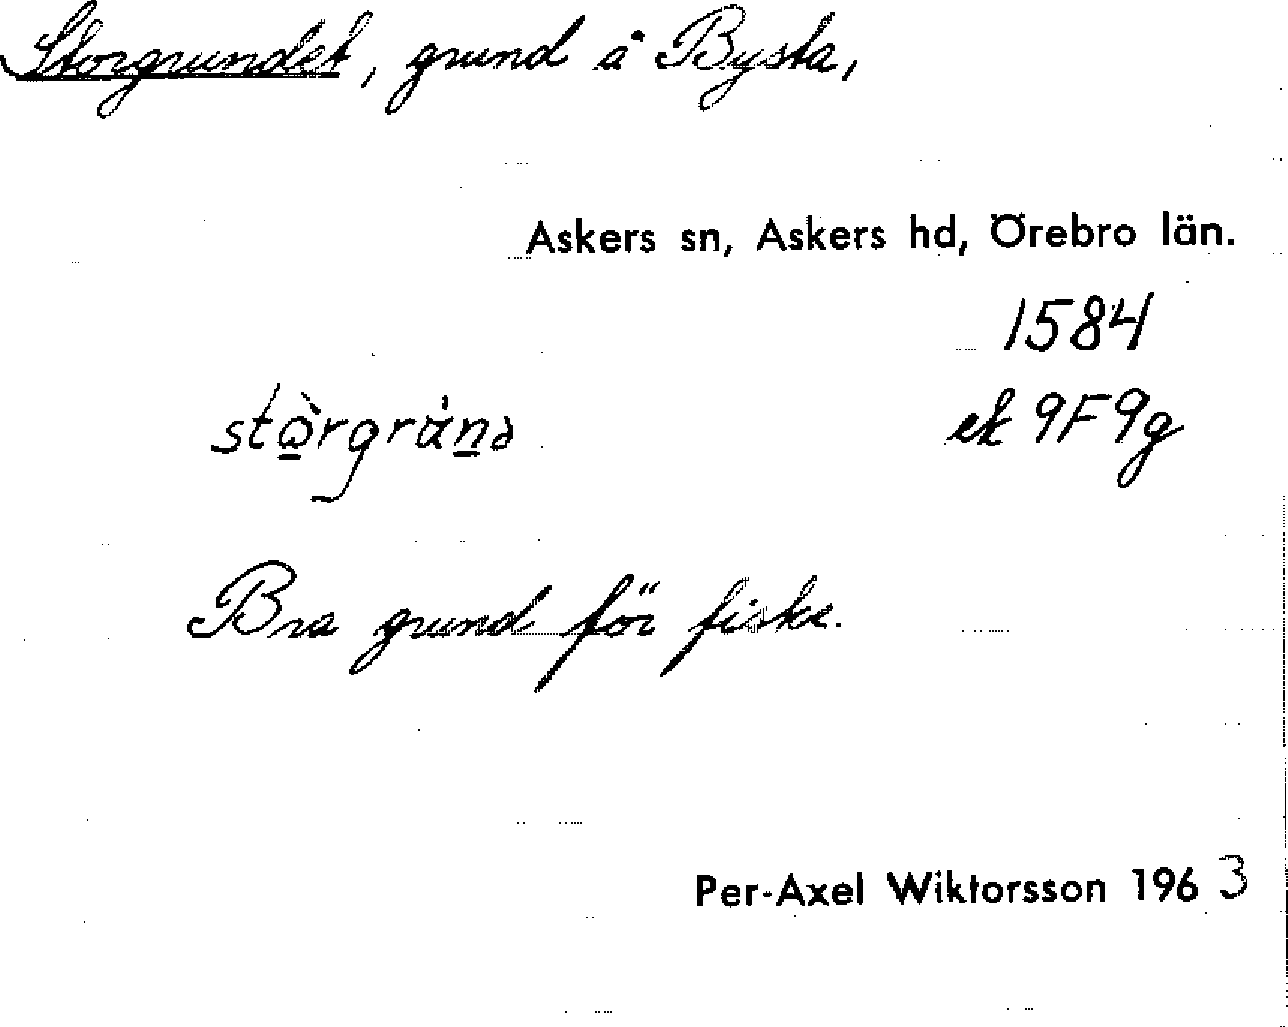 Storgrundet, grund å Bysta,
Askers sn, Askers hd, Örebro län.
1584
ek 9F9g
Bra grund för fiske.
Per-Axel Wiktorsson 1963